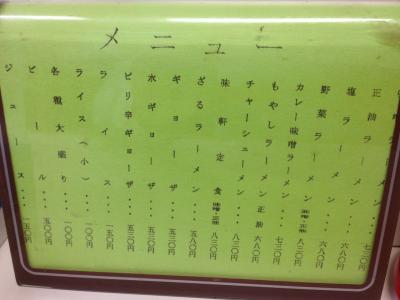 メニュー
正油ラーメン・・・
塩ラーメン・・・六八〇円
野菜ラーメン・・・
カレー味噌ラーメン 八三〇円
もやしラーメン 正油 六八〇円
チャーシューメン 八三〇円
味軒定食 味噌・正油 八三〇円
ざるラーメン・・・五八〇円
ギョーザ・・・
水ギョーザ・・・五三〇円
ピリ辛ギョーザ・・五三〇円
ライス・・・一五〇円
ライス(小)・・・一〇〇円
各種大盛り・・・一〇〇円
ビール・・・五〇〇円
ジュース・・・一五〇円